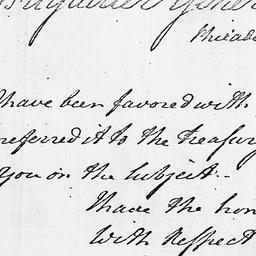 Brigadier Gener
Philad
I have been favored with
referred it to the Treasury
you on the subject..
I have the hon
with Respect